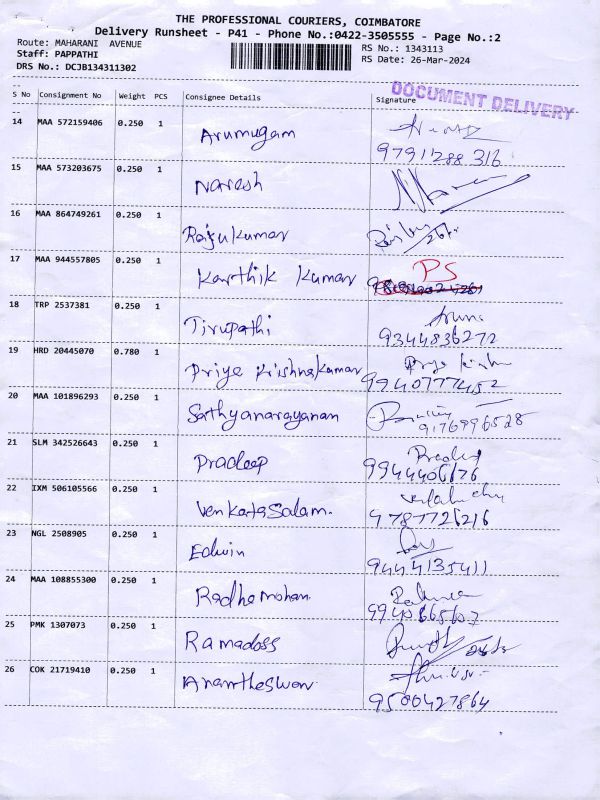 THE PROFESSIONAL COURIERS, COIMBATORE
Delivery Runsheet - P41 - Phone No.:0422-3505555 - Page No.:2
Route: MAHARANI AVENUE RS No.: 1343113
Staff: PAPPATHI RS Date: 26-Mar-2024
DRS No.: DCJB134311302
DOCUMENT DELIVERY
S No Consignment No Weight PCS Consignee Details Signature
14 MAA 572159406 0.250 1 Arumugam
9791288316
15 MAA 573203675 0.250 1 Naresh
16 MAA 864749261 0.250 1 Rajukumar
17 MAA 944557805 0.250 1 Karthik Kumar PS
18 TRP 2537381 0.250 1 Tirupathi
9344836272
19 HRD 20445070 0.780 1 Priya Krishnakumar
9940777452
20 MAA 101896293 0.250 1 Sathyanarayanan
9176996528
21 SLM 342526643 0.250 1 Pradeep
9944406176
22 IXM 506105566 0.250 1 Venkatasalam.
9787726216
23 NGL 2508905 0.250 1 Edwin
9444135411
24 MAA 108855300 0.250 1 Radhamohan
25 PMK 1307073 0.250 1 Ramadoss
26 COK 21719410 0.250 1 Anantheswari
9500427864